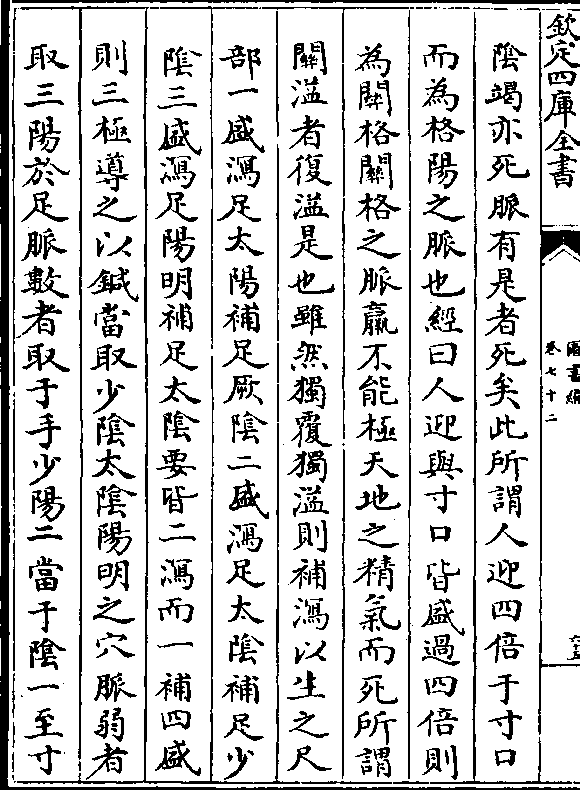 欽定四庫全書
圖書編
卷七十二
陰竭亦死脈有是者死矣此所謂人迎四倍于寸口
而為格陽之脈也經曰人迎與寸口皆盛過四倍則
為關格關格之脈羸不能極天地之精氣而死所謂
關溢者復溢是也雖然獨覆獨溢則補瀉以生之尺
部一盛瀉足太陽補足厥陰二盛瀉足太陰補足少
陰三盛瀉足陽明補足太陰要皆二瀉而一補四盛
則三極導之以鍼當取少陰太陰陽明之穴脈弱者
取三陽於足脈數者取于手少陽二當于陰一至寸